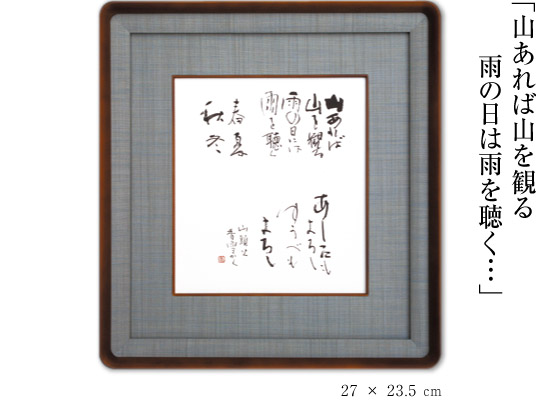 「山あれば山を観る
雨の日は雨を聴く…」
山あれば
山を観る
雨の日は
雨を聴く
春夏
秋冬
あしたも
よろし
ゆうべも
よろし
山頭火
27 × 23.5 cm